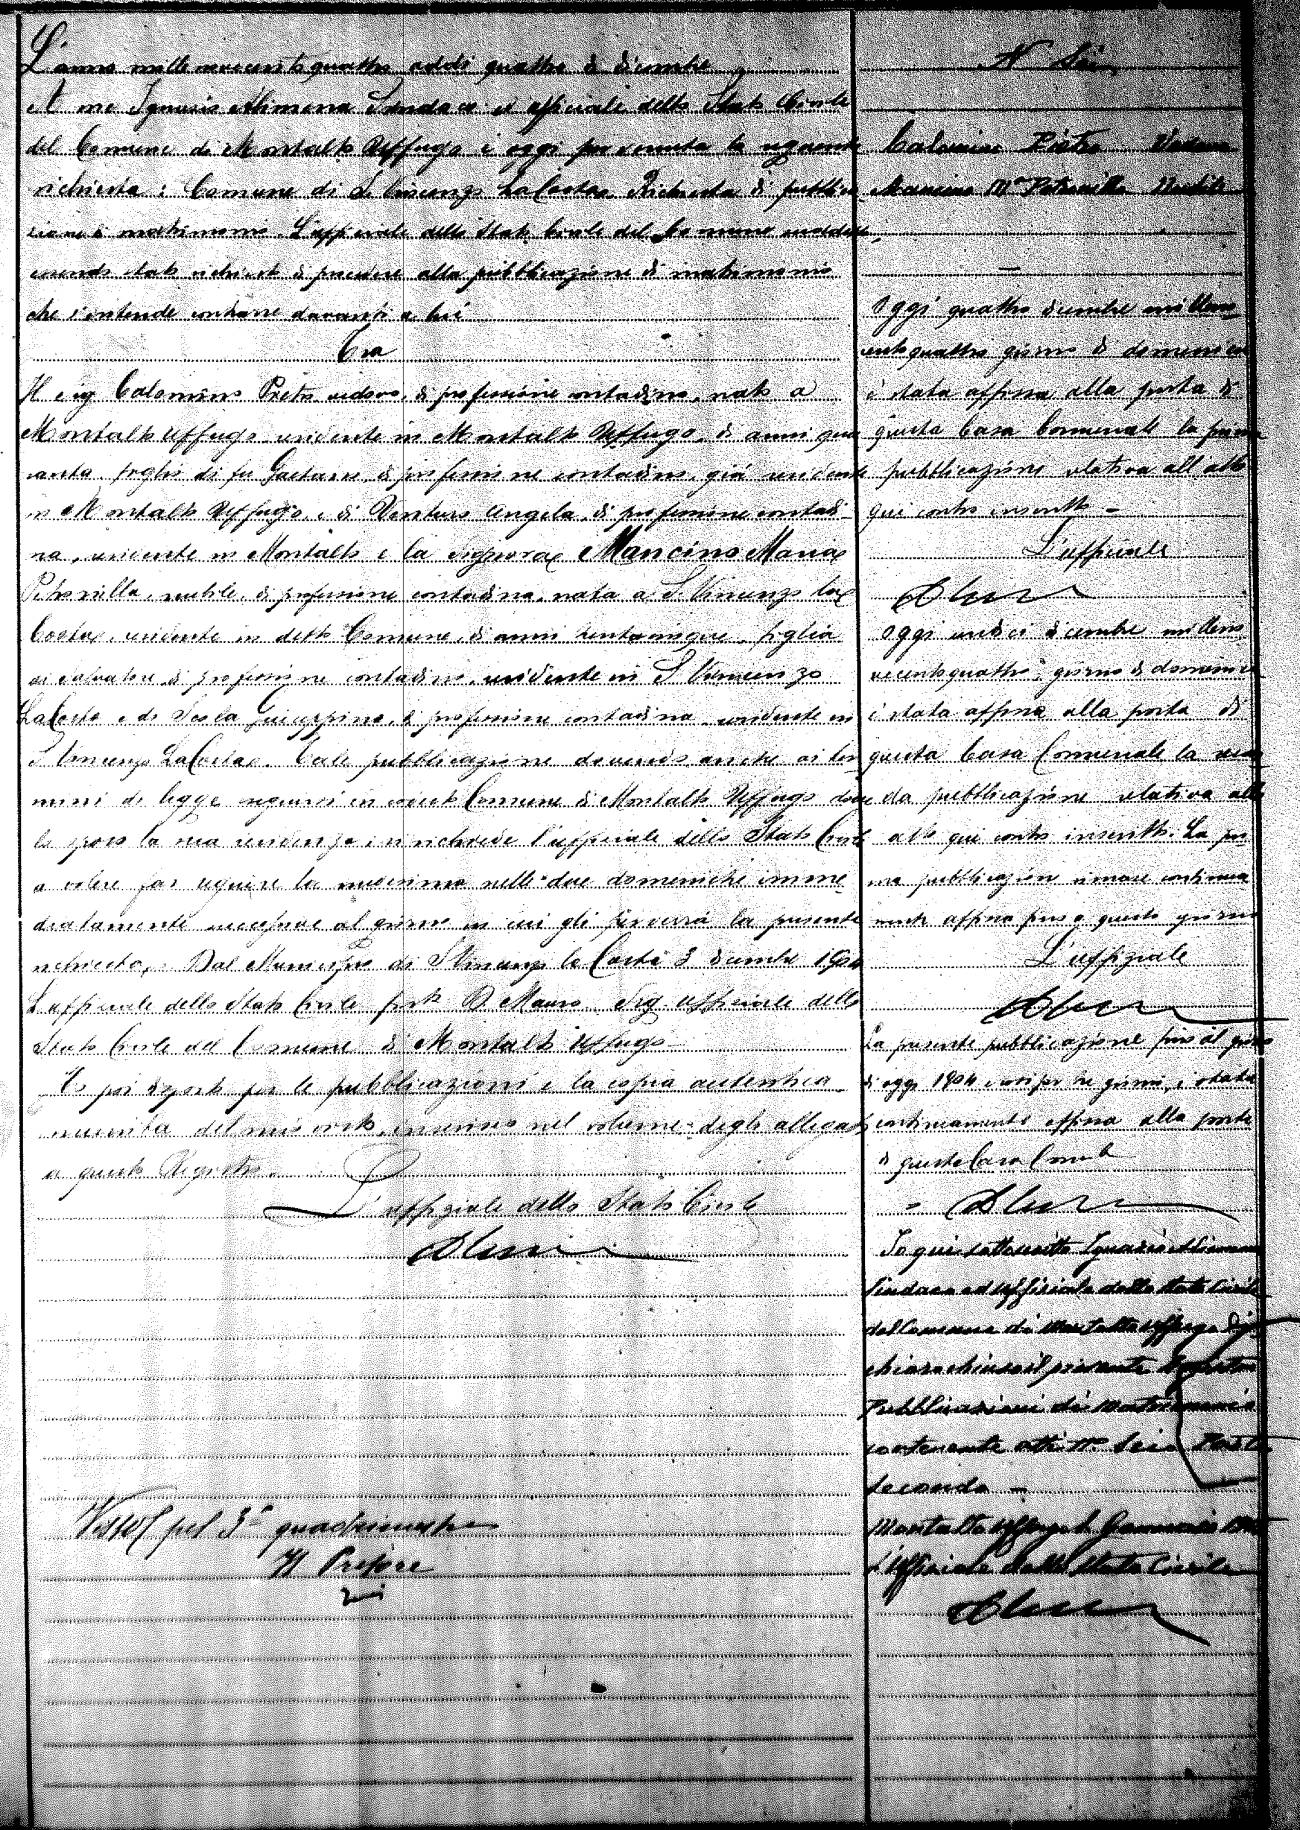 L'anno millenovecentoquattro addì quattro di dicembre
A me Ignazio Alimena Sindaco ed officiale dello Stato Civile
del Comune di Montalto Uffugo è oggi pervenuta la seguente
richiesta: Comune di S. Vincenzo La Costa. Richiesta di pubblica
zione di matrimonio. L'officiale dello Stato Civile del Comune suddetto
essendo stato richiesto di procedere alla pubblicazione di matrimonio
che s'intende contrarre davanti a lui
Tra
Il sig Calomino Pietro vedovo, di professione contadino, nato a
Montalto Uffugo, residente in Montalto Uffugo, di anni qua
ranta, figlio di fu Gaetano, di professione contadino, già residente
in Montalto Uffugo, e di Venturo Angela, di professione contadi-
na, residente in Montalto e la signora Mancino Maria
Petronilla, nubile, di professione contadina, nata a S. Vincenzo La
Costa, residente in detto Comune, di anni trentacinque, figlia
di Salvatore, di professione contadino, residente in S. Vincenzo
La Costa e di Scola Giuseppina, di professione contadina, residente in
S. Vincenzo La Costa. Tale pubblicazione dovendo anche ai ter
mini di legge seguirsi in codesto Comune di Montalto Uffugo dove
lo sposo ha sua residenza, si richiede l'officiale dello Stato Civile
a voler far seguire la medesima nelle due domeniche imme
diatamente successive al giorno in cui gli perverrà la presente
richiesta. Dal Municipio di S. Vincenzo la Costa 3 dicembre 1904
L'officiale dello Stato Civile firto D. Mauro. Sig officiale dello
Stato Civile del Comune di Montalto Uffugo
Ho poi disposto per le pubblicazioni e la copia autentica
munita del mio visto, inserisco nel volume degli allegati
a questo Registro.
L'uffiziale dello Stato Civile
Visto pel 3° quadrimestre
Il Pretore
N° Sei
Calomino Pietro Vedovo
Mancino Mª Petronilla Nubile
Oggi quattro dicembre millenove
centoquattro giorno di domenica
è stata affissa alla porta di
questa Casa Comunale la prima
pubblicazione relativa all'atto
qui contro inscritto
L'officiale
Oggi undici dicembre milleno
vecentoquattro, giorno di domenica
è stata affissa alla porta di
questa Casa Comunale la secon
da pubblicazione relativa allo
atto qui contro inscritto. La pri
ma pubblicazione rimase continua
mente affissa fino a questo giorno
L'uffiziale
La presente pubblicazione fino al giorno
di oggi 1904 e così per tre giorni, è stata
continuamente affissa alla porta
di questa Casa Comle
Io qui sottoscritto Ignazio Alimena
Sindaco ed Uffiziale dello Stato Civile
del Comune di Montalto Uffugo di
chiaro chiuso il presente Registro
Pubblicazioni di Matrimonio
contenente atti n° Seis Parte
Seconda
Montalto Uffugo Gennaio
L'Uffiziale dello Stato Civile